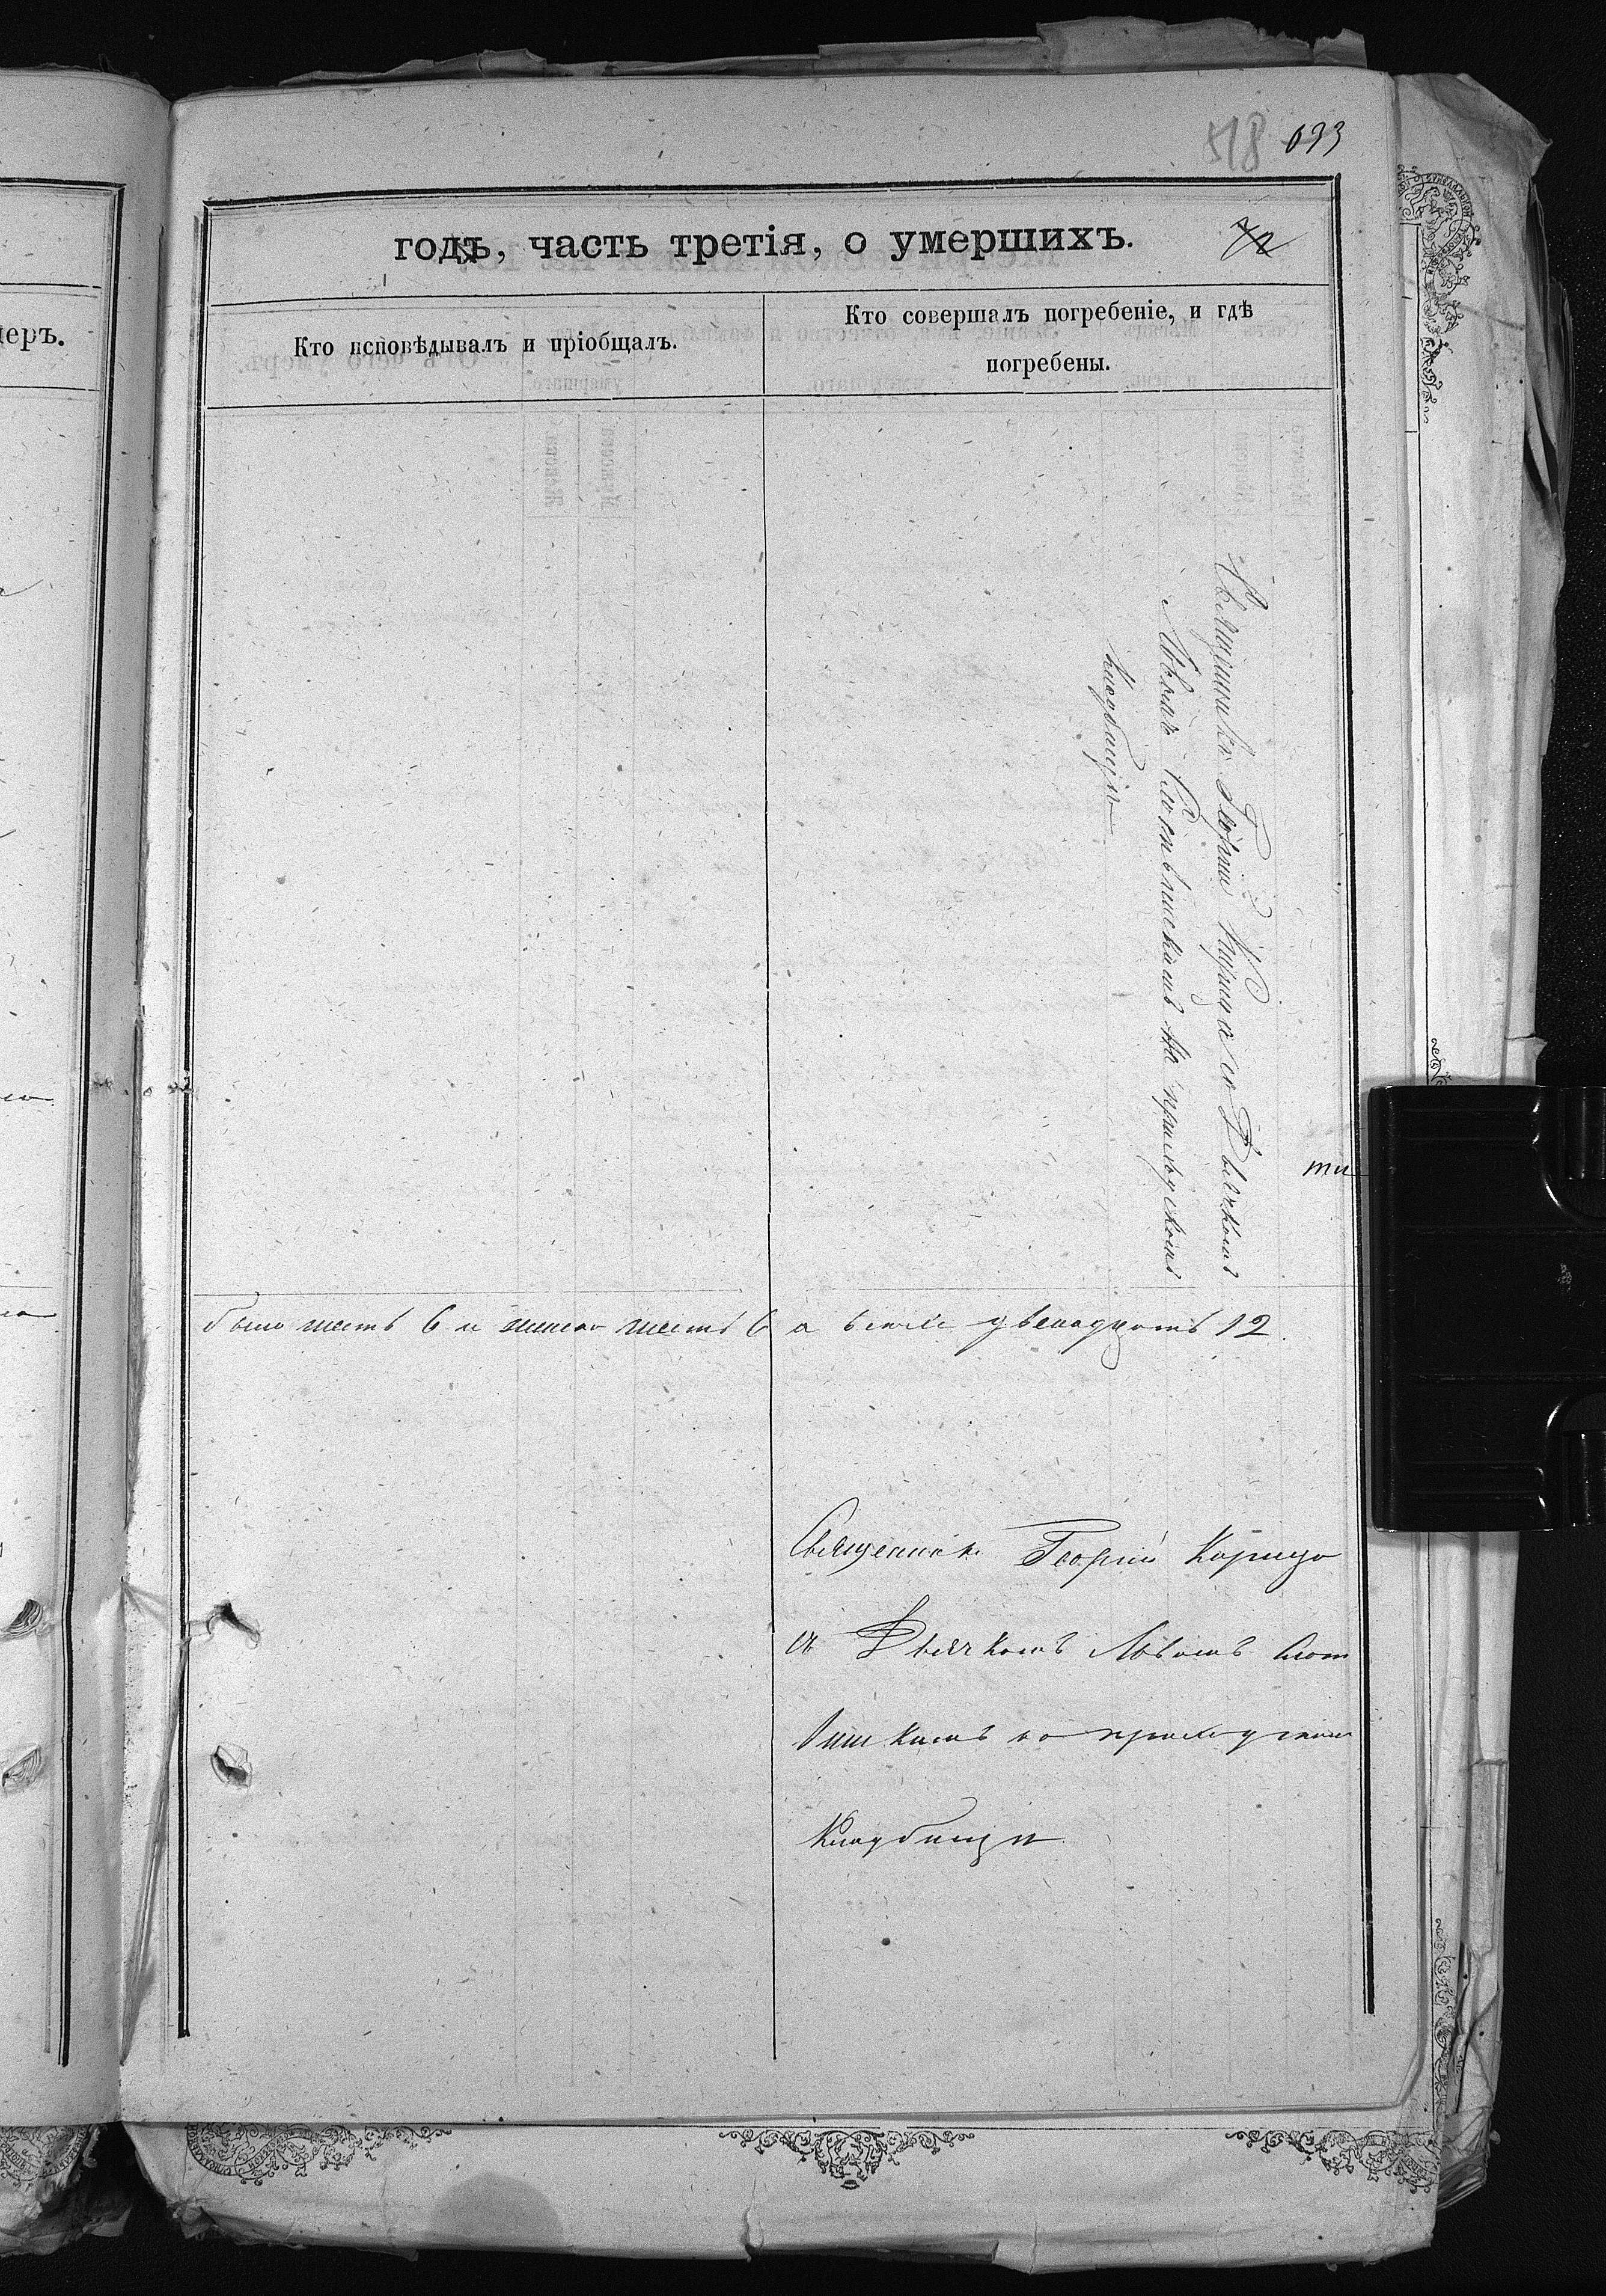 518 633
годъ, часть третія, о умершихъ.
72
меръ.
Кто исповѣдывалъ и пріобщалъ.
Кто совершалъ погребеніе, и гдѣ
погребены.
Священникъ Георгій Корица съ Дьячкомъ
Львомъ на приходскомъ
Кладбищѣ
ти
было шесть 6 и шесть 6 а всѣхъ двенадцать 12.
Священникъ Георгій Корица
съ Дьячкомъ Львомъ
на приходском
Кладбищѣ